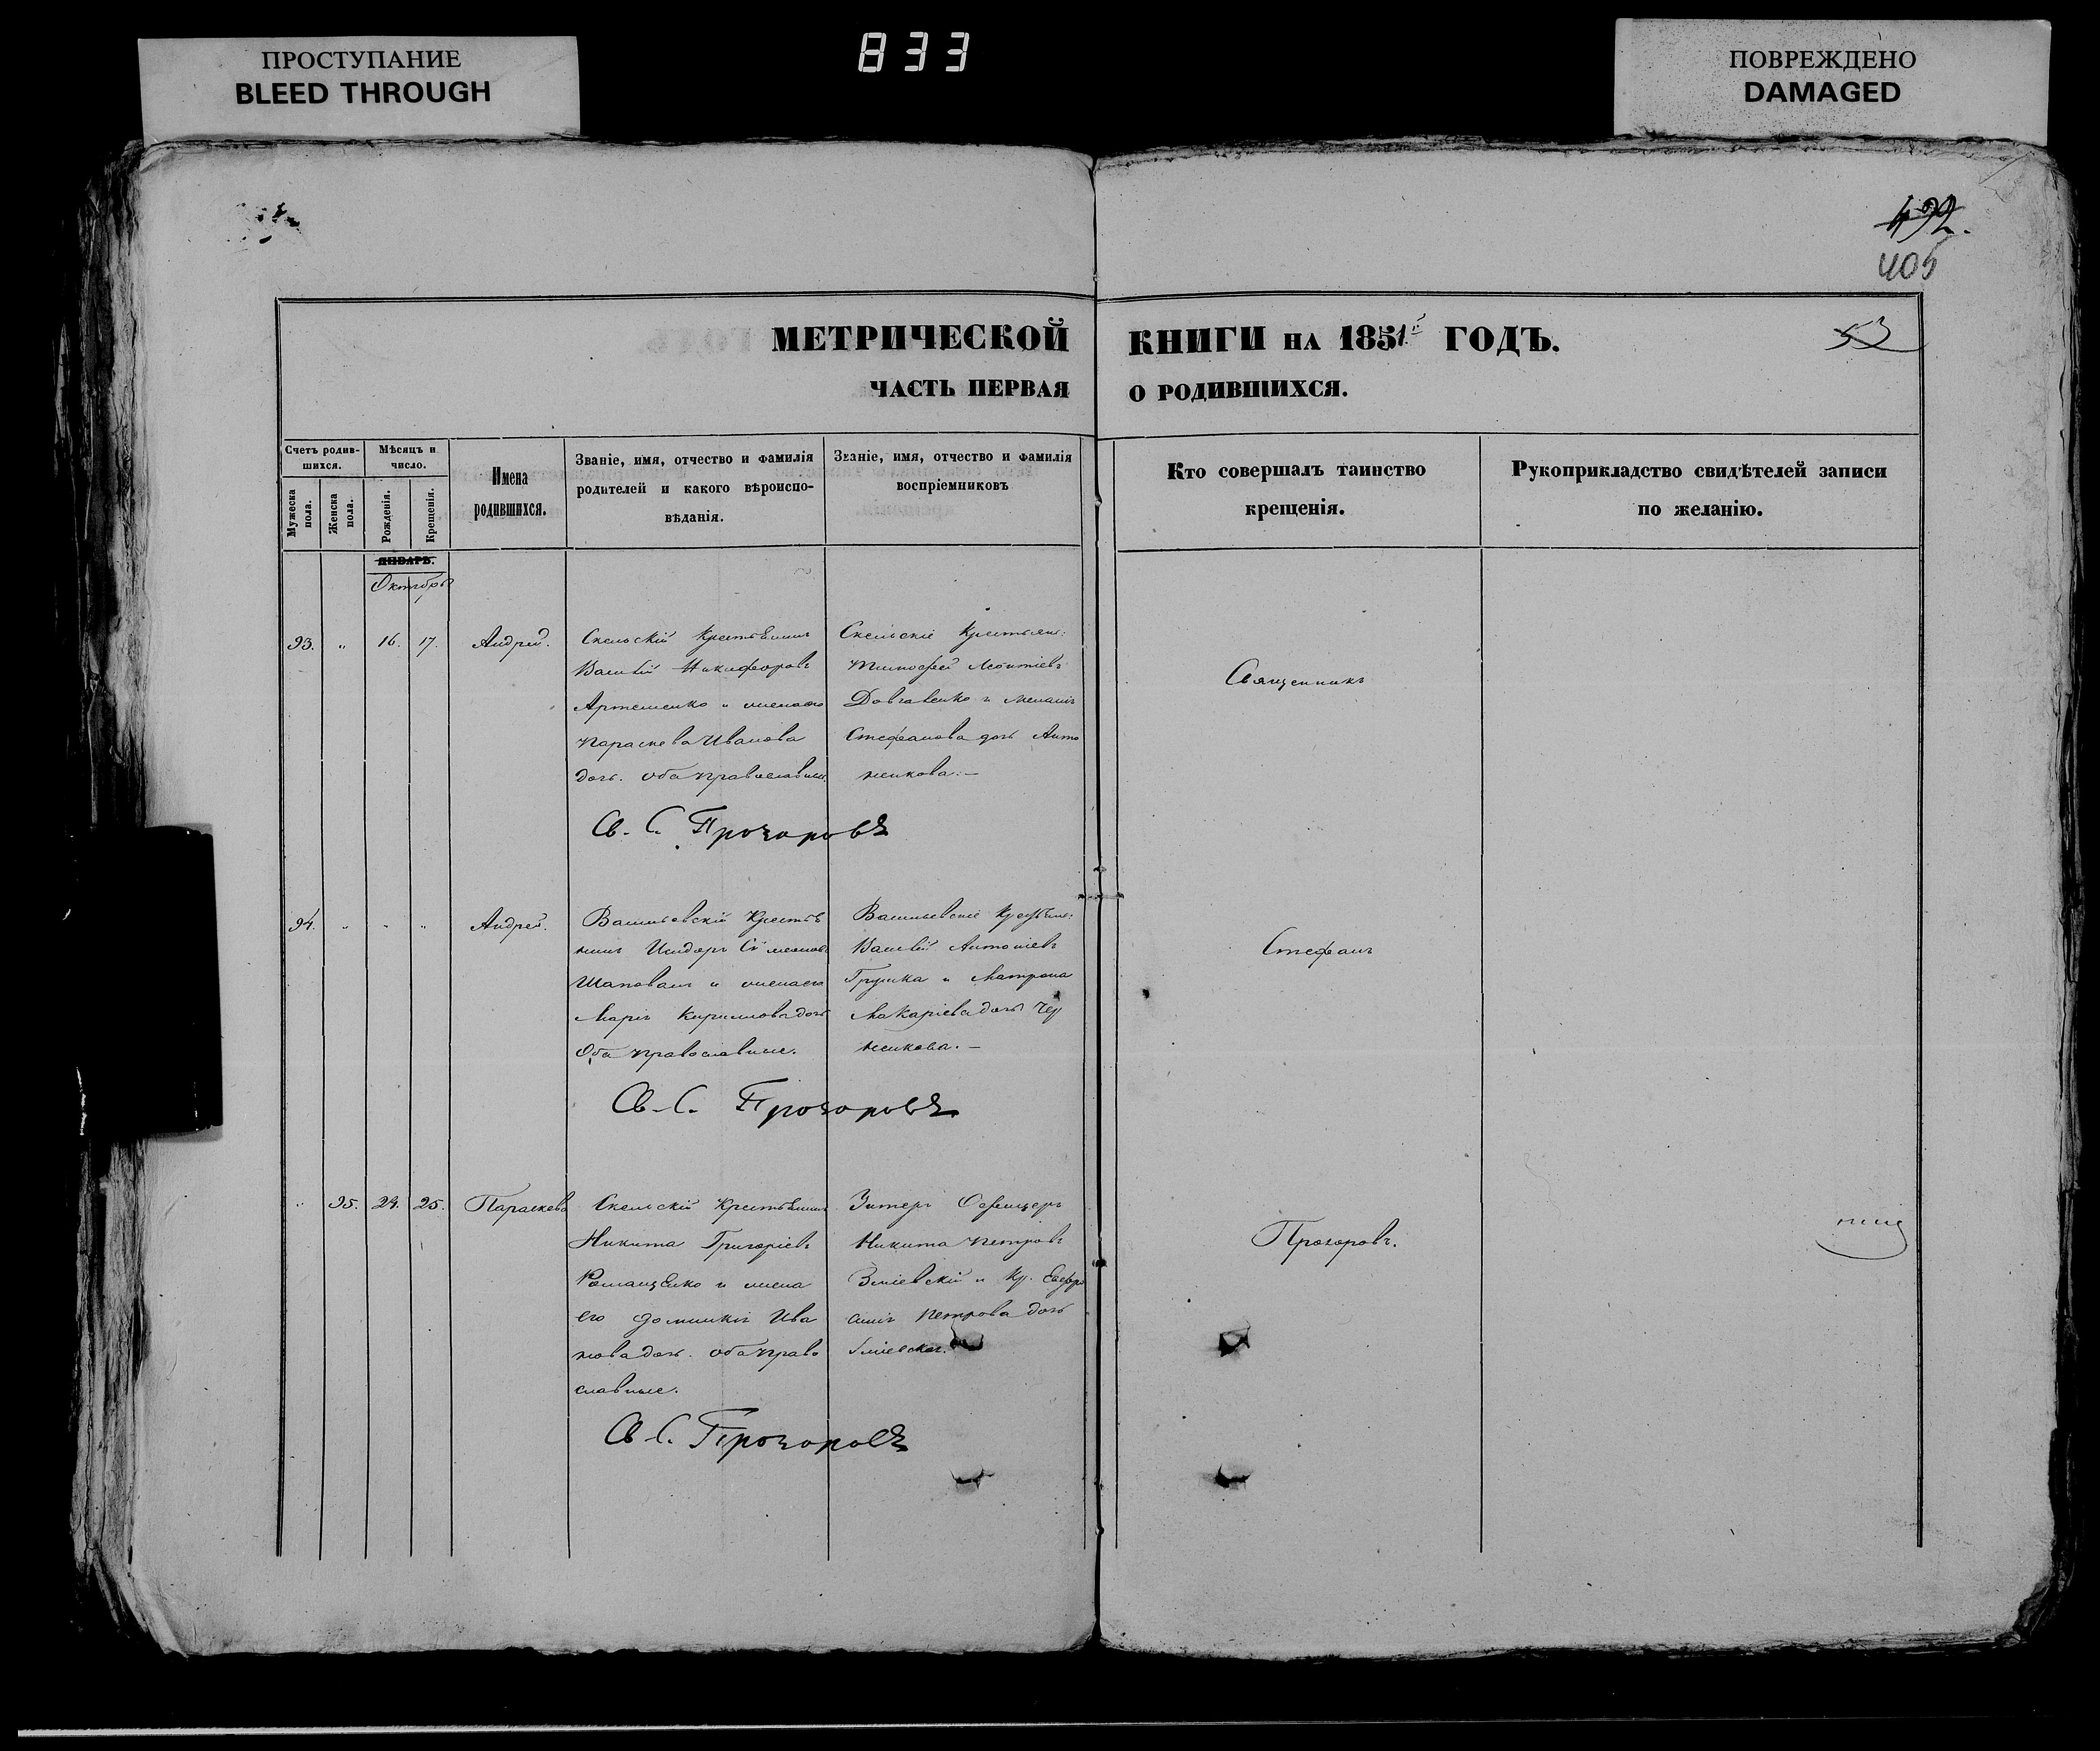 ПРОСТУПАНИЕ
BLEED THROUGH
833
ПОВРЕЖДЕНО
DAMAGED
492.
405
МЕТРИЧЕСКОЙ КНИГИ НА 1851й ГОДЪ.
53
ЧАСТЬ ПЕРВАЯ О РОДИВШИХСЯ.
Счетъ родив-
шихся.
Мужеска пола.
Женска пола.
Мѣсяцъ и
число.
Рожденія.
Крещенія.
Имена
родившихся.
Званіе, имя, отчество и фамилія
родителей и какого вѣроиспо-
вѣданія.
Званіе, имя, отчество и фамилія
воспріемниковъ
Кто совершалъ таинство
крещенія.
Рукоприкладство свидѣтелей записи
по желанію.
ЯНВАРЬ.
Октябрь
93. " 16. 17. Андрей.
Скельскій Крестьянинъ
Василій Никифоровъ
Артеменко и жена его
Параскева Иванова
дочь. оба православные.
Скельскіе Крестьяне:
Тимофей Леонтіевъ
Довгаленко и Меланія
Стефанова дочь Анто
ненкова.-
Священникъ
Св. С. Прохоровъ
94. " " " Андрей.
Васильевскій Крестья
нинъ Исидоръ Симеоновъ
Шаповалъ и жена его
Марія Кириллова дочь
Оба православные.
Васильевскіе Крестьяне:
Василій Антоніевъ
Грушка и Матрона
Макаріева дочь Чер
ненкова.-
Стефанъ
Св. С. Прохоровъ
" 95. 24. 25. Параскева
Скельскій Крестьянинъ
Никита Григоріевъ
Романценко и жена
его Домникія Ива
нова дочь. оба право
славные.
Унтеръ Офицеръ
Никита Петровъ
Зміевскій и Кр. Евфро
синія Петрова дочь
Зміевская.
Прохоровъ.
Св. С. Прохоровъ